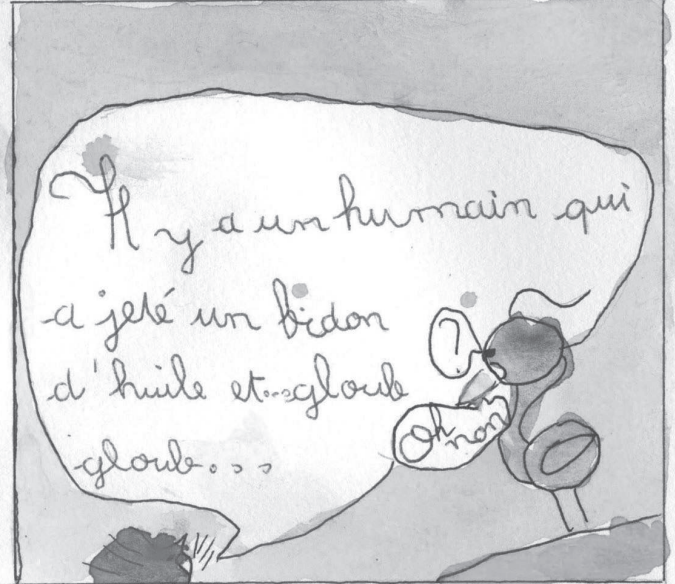 Il y a un humain qui
a jeté un bidon
d'huile et...gloub
gloub...
?
Oh non